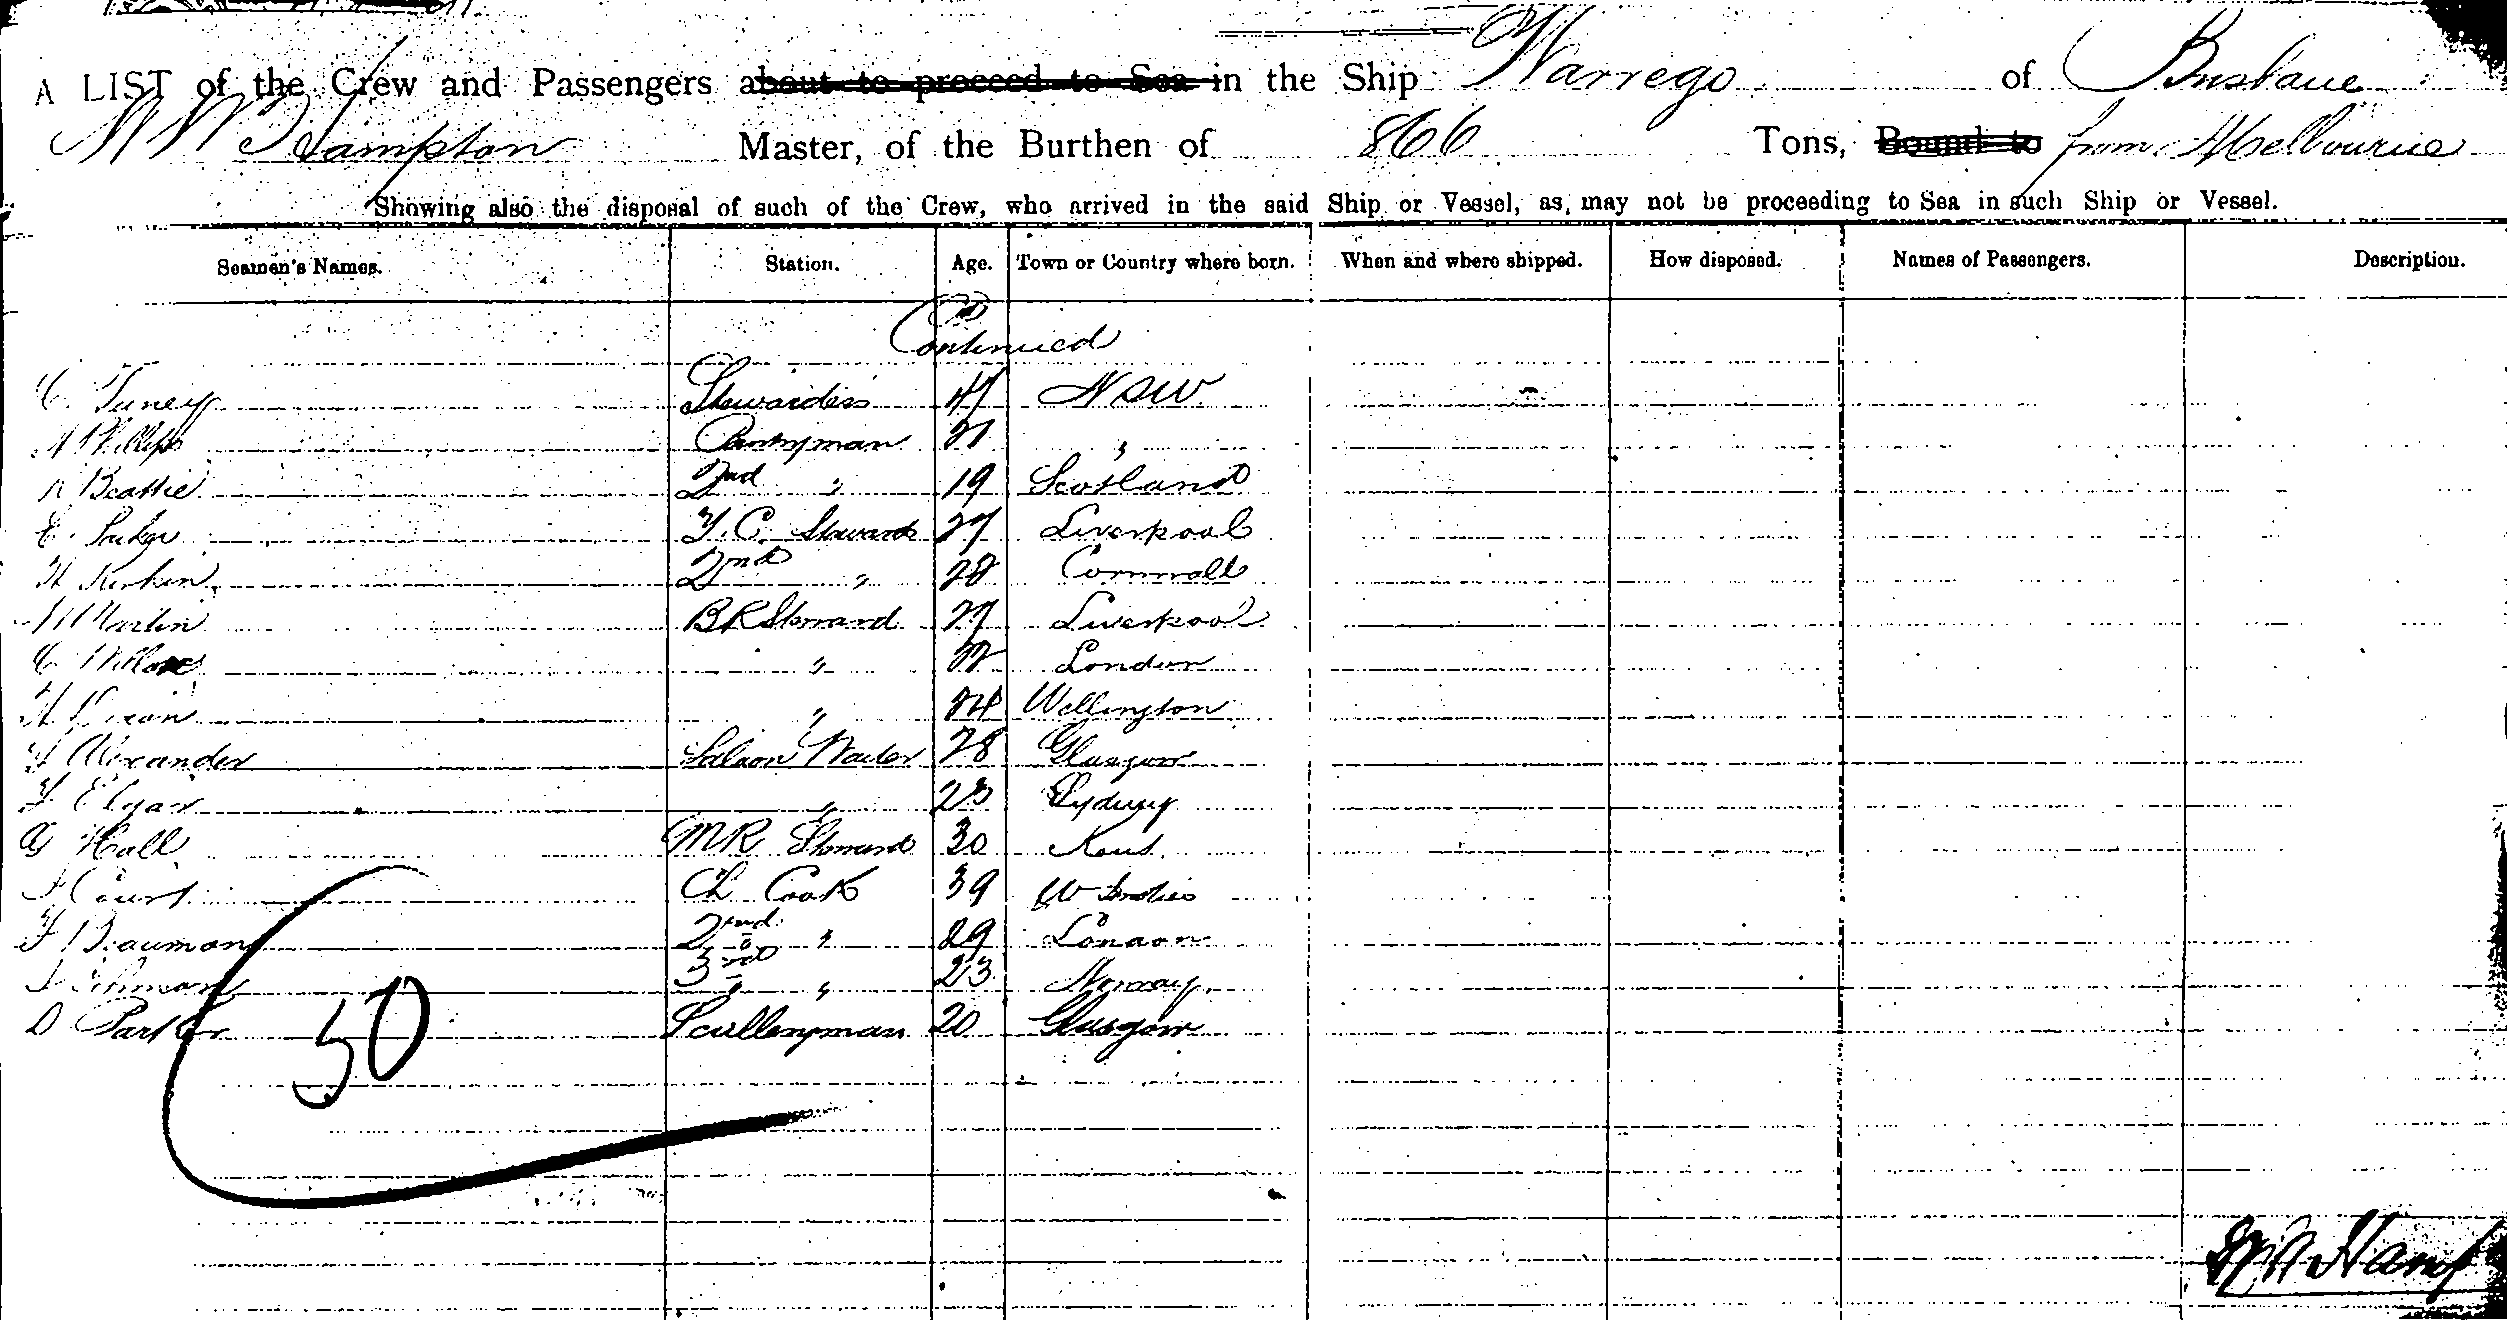 A LIST of the Crew and Passengers about to proceed to Sea in the Ship Warrego of Brisbane
Hampton Master, of the Burthen of 866 Tons, Bound to from Melbourne
Showing also the disposal of such of the Crew, who arrived in the said Ship or Vessel, as may not be proceeding to Sea in such Ship or Vessel.
Seamen's Names. Station. Age. Town or Country where born. When and where shipped. How disposed. Names of Passengers. Description.
Continued
C. Stewardess 47 NSW
Phillips Pantryman 21 "
R Beattie 2nd " 19 Scotland
E. Steward 27 Liverpool
H 2nd " 28 Cornwall
Martin BR Steward 27 Liverpool
C " London
H Dixon " 24 Wellington
Alexander Saloon Waiter 28 Glasgow
Elgar " 23 Sydney
G Hall MR Steward 30 Kent
Court Ch Cook 39 W Indies
F Beaumont 2nd " 29 London
3rd " 23 Norway.
D Parker Sculleryman 20 Glasgow
50